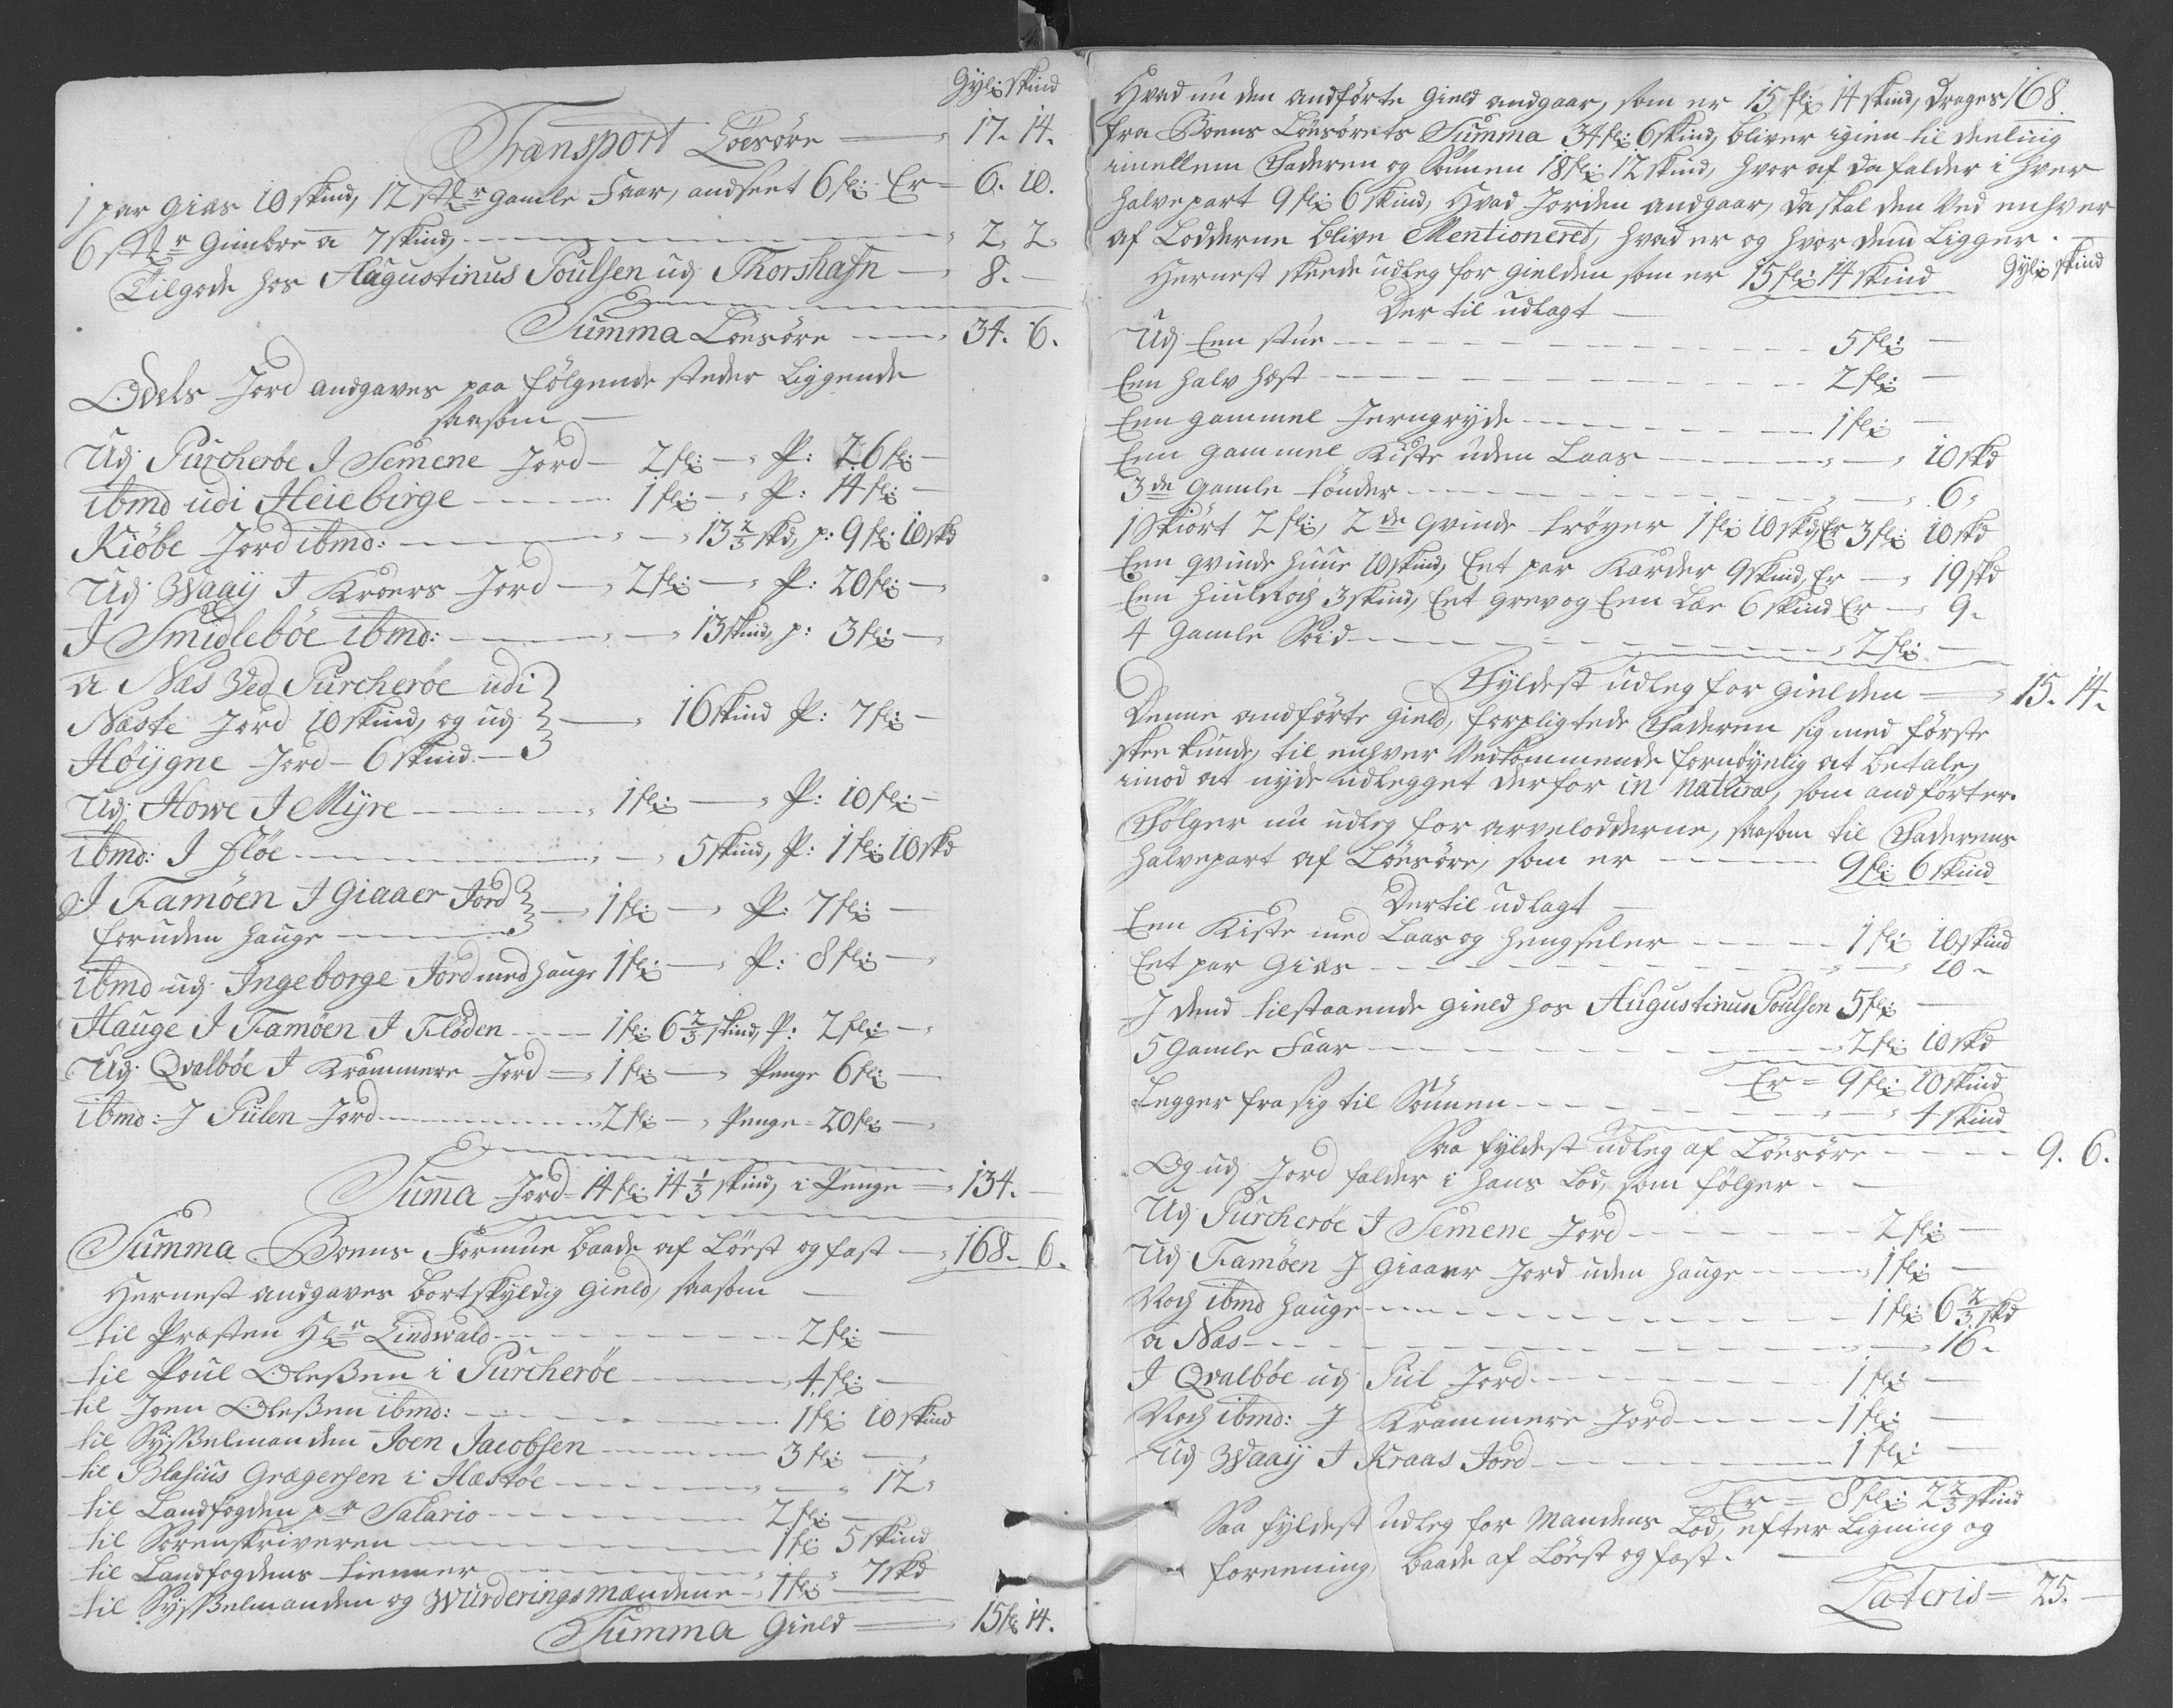 Gyl: skind
Transport Löesöre — 17. 14.
1 par Giæs 10 skind, 12 stkr gamle Faar, andseet 6 fl: Er = 6. 10.
6 stkr Gimbre a 7 skind, — 2. 2.
Tilgode hos Augustinus Poulsen udj Thorshafn — 8. —
Summa Löesöre — 34. 6.
Odels Jord andgaves paa følgende steder Liggende
saasom —
Udj Purcheröe I Semene Jord — 2 fl: — P: 26 fl: —
ibmd udi Heiebirge — 1 fl: — P: 14 fl: —
Kiöbe Jord ibmd: — 13 2/3 skd, p: 9 fl: 10 skd
Udj Waaij I Kroers Jord — 2 fl: — P: 20 fl: —
I Smidleböe ibmd: — 13 skind, p: 3 fl: —
a Næs Ved Purcheröe udi
Næste Jord 10 skind, og udj — 16 skind P: 7 fl: —
Höijgne Jord — 6 skind —
Udj Howe I Mijre — 1 fl: — P: 10 fl: —
ibmd: I flöe — 5 skind, P: 1 fl: 10 skd
I Famöen I Giaaer Jord
foruden hauge — 1 fl: — P: 7 fl: —
ibmd udj Ingeborge Jord med hauge 1 fl: — P: 8 fl: —
Hauge I Famöen I Flöden — 1 fl: 6 2/3 skind, P: 2 fl: —
Udj Qvalböe I Krammere Jord — 1 fl: — Penge 6 fl: —
ibmd: I Piilen Jord — 2 fl: — Penge = 20 fl: —
Suma Jord = 14 fl: 14 1/3 skind, i Penge = 134. —
Summa Boens Formue baade af Löest og fast — 168. 6.
Hernest andgaves bortskyldig gield, saasom —
til Præsten Hr Lindwald — 2 fl: —
til Poul Oleßen i Purcheröe — 4 fl: —
til Joen Oleßen ibmd: — 1 fl: 10 skind
til Sysßelmanden Joen Jacobsen — 3 fl: —
til Blasius Grægersen i Hæstöe — 12.
til Landfogden pr Salario — 2 fl: —
til Sorenskriveren — 1 fl: 5 skind
til Landfogdens tienner — 7 skd
til Sysßelmanden og Wurderings mændene — 1 fl: —
Summa Gield — 15 fl: 14.
168.
Hvad nu den andførte Gield andgaar, som er 15 fl: 14 skind, drages
fra Boens Löesörets Summa 34 fl: 6 skind, bliver igien til deeling
imellem Faderen og Sönnen 18 fl: 12 skind, hvor af da falder i hver
halvepart 9 fl: 6 skind, Hvad Jorden andgaar, da skal den Ved enhver
af Lodderne blive Mentioneret, hvad er og hvor dend Ligger. —
Hernest skeede udleg for gielden som er 15 fl: 14 skind
Gyl: skind
Der til udlagt —
Udj Een stue — 5 fl: —
Een halv hest — 2 fl: —
Een gammel Jerngryde — 1 fl: —
Een gammel Kiste uden Laas — 10 skd
3de gamle tönder — 6.
1 Skiört 2 fl:, 2de qvinde tröyer 1 fl: 10 skd, Er 3 fl: 10 skd
Een qvinde huue 10 skind, Eet par Karder 9 skind, Er — 19 skd
Een Hiulrock 3 skind, Eet grev og Een Lae 6 skind Er — 9.
4 Gamle — 2 fl: —
Fyldest udleg for gielden — 15. 14.
Denne andførte gield, forpligtede Faderen sig med første
skee kunde, til enhver Vedkommende fornöyelig at betale,
imod at nyde udlegget derfor in natura, som andförter.
Fölger nu udleg for arvelodderne, saasom til Faderens
halvepart af Löesöre, som er — 9 fl: 6 skind
Dertil udlagt —
Een Kiste med Laas og hengseler — 1 fl: 10 skind
Eet par Giæs — 10.
I dend tilstaaende gield hos Augustinus Poulsen 5 fl: —
5 Gamle Faar — 2 fl: 10 skd
Er = 9 fl: 10 skind
Legger fra sig til Sönnen — 4 skind
Saa fyldest udleg af Löesöre — 9. 6.
Og udj Jord falder i hans Lod, som fölger —
Udj Purcheröe I Semene Jord — 2 fl: —
Udj Famöen I Giaaer Jord uden hauge — 1 fl: —
Noch ibmd hauge — 1 fl: 6 2/3 skd
a Næs — 16.
I Qvalböe udj Piil Jord — 1 fl: —
Noch ibmd: I Krammere Jord — 1 fl: —
Udj Waaij I Kraas Jord — 1 fl: —
Er = 8 fl: 2 2/3 skind
Saa fyldest udleg for Mandens Lod, efter Ligning og
foreening, baade af Löest og fast. —
Lateris = 25. —